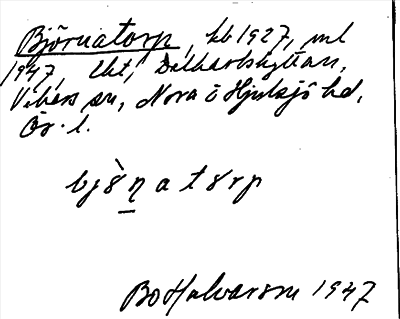 Björnatorp, kb 1927, ml
1947, lht, Dalkarlshyttan,
Vikers sn, Nora o Hjulsjö hd,
Ör. l.
bjö̀n̲atorp
Bo Halvarson 1947